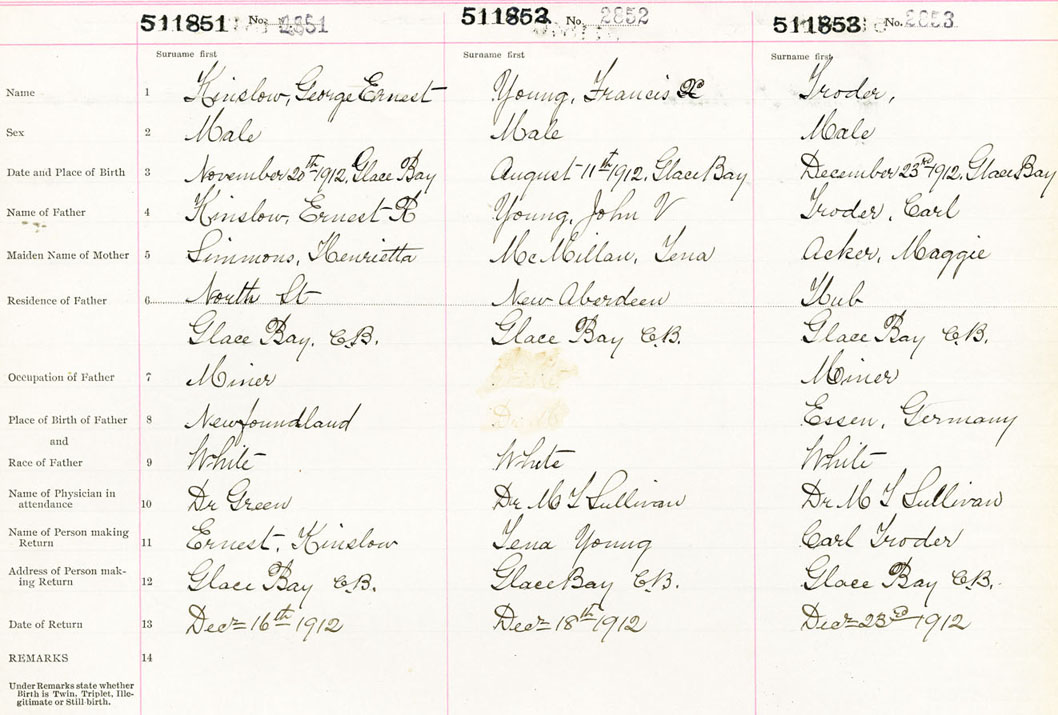 511851 No. 2851 511852 No. 2852 511853 No. 2853
Surname first Surname first Surname first
Name 1 Kinslow, George Ernest Young, Francis X Troder,
Sex 2 Male Male Male
Date and Place of Birth 3 November 20th 1912, Glace Bay August 11th 1912, Glace Bay December 23rd 1912, Glace Bay
Name of Father 4 Kinslow, Ernest R Young, John V Troder, Carl
Maiden Name of Mother 5 Simmons, Henrietta McMillan, Tena Acker, Maggie
Residence of Father 6 North St New Aberdeen Hub
Glace Bay, C.B. Glace Bay C.B. Glace Bay C.B.
Occupation of Father 7 Miner Miner
Place of Birth of Father 8 Newfoundland Essen, Germany
and
Race of Father 9 White White White
Name of Physician in
attendance 10 Dr Green Dr M T Sullivan Dr M T Sullivan
Name of Person making
Return 11 Ernest, Kinslow Tena Young Carl Troder
Address of Person mak-
ing Return 12 Glace Bay C.B. Glace Bay C.B. Glace Bay C.B.
Date of Return 13 Decr 16th 1912 Decr 18th 1912 Decr 23rd 1912
REMARKS 14
Under Remarks state whether
Birth is Twin, Triplet, Ille-
gitimate or Still-birth.